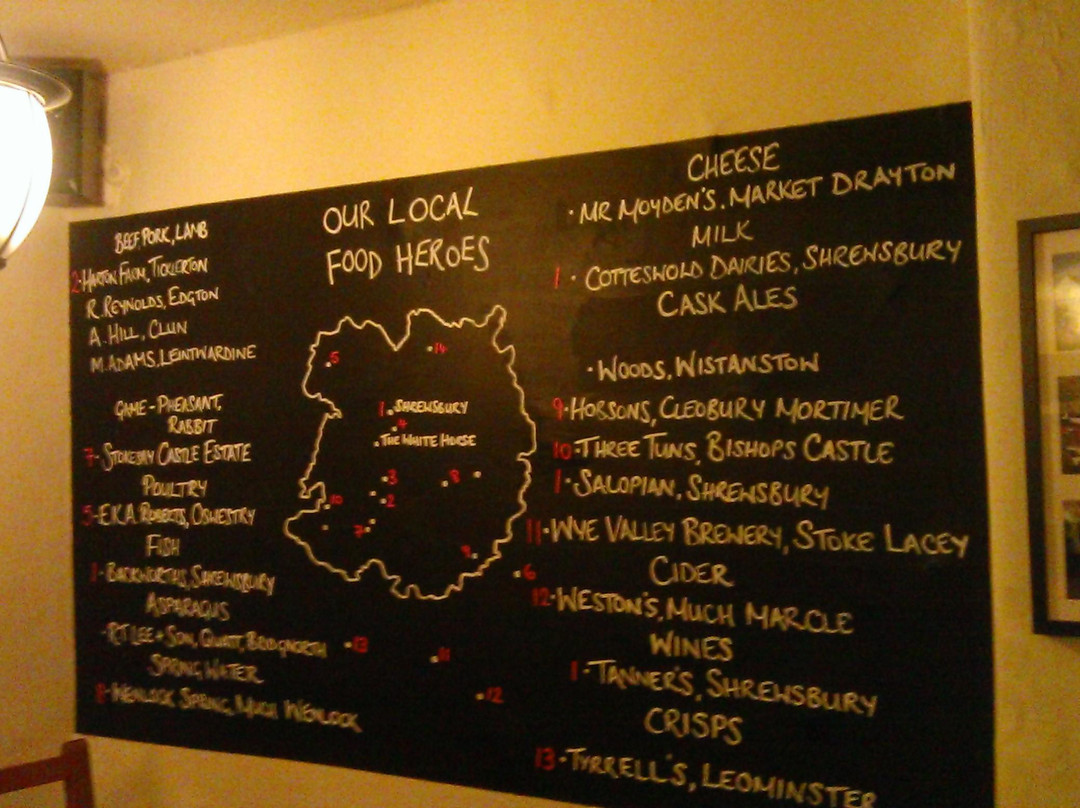 OUR LOCAL
FOOD HEROES
BEEF PORK, LAMB
2. HARTON FARM, TICKLERTON
R. REYNOLDS, EDGTON
A. HILL, CLUN
M. ADAMS, LEINTWARDINE
GAME - PHEASANT,
RABBIT
7. STOKESAY CASTLE ESTATE
POULTRY
5. E.K.A. ROBERTS, OSWESTRY
FISH
1. BARKWORTHS, SHREWSBURY
ASPARAGUS
· R.T LEE + SON, QUATT, BRIDGNORTH
SPRING WATER
8. WENLOCK SPRING, MUCH WENLOCK
5
14
1. SHREWSBURY
4
THE WHITE HORSE
3
8
2
10
7
9
6
13
11
12
CHEESE
· MR MOYDEN'S. MARKET DRAYTON
MILK
1 · COTTESWOLD DAIRIES, SHRENSBURY
CASK ALES
· WOODS, WISTANSTOW
9· HOBSONS, CLEOBURY MORTIMER
10· THREE TUNS, BISHOPS CASTLE
1· SALOPIAN, SHREWSBURY
11· WYE VALLEY BREWERY, STOKE LACEY
CIDER
12· WESTON'S, MUCH MARCLE
WINES
1· TANNER'S, SHREWSBURY
CRISPS
13· TYRRELL'S, LEOMINSTER